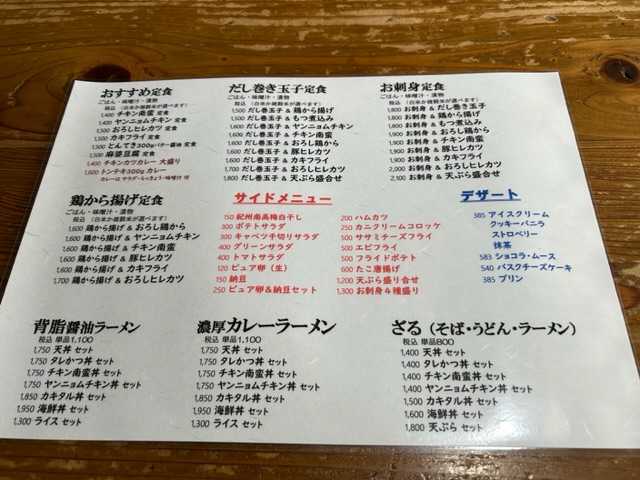 おすすめ定食
ごはん・味噌汁・漬物
税込 (白米か雑穀米が選べます)
1,400 チキン南蛮 定食
1,400 ヤンニョムチキン 定食
1,500 おろしヒレカツ 定食
1,500 カキフライ 定食
1,500 とんてき300gバター醤油 定食
1,500 麻婆豆腐 定食
1,400 チキンカツカレー 大盛り
1,600 トンテキ300g カレー
カレーは サラダ・らっきょう・味噌汁 付
だし巻き玉子定食
ごはん・味噌汁・漬物
税込 (白米か雑穀米が選べます)
1,500 だし巻玉子 & 鶏から揚げ
1,500 だし巻玉子 & もつ煮込み
1,600 だし巻玉子 & ヤンニョムチキン
1,600 だし巻玉子 & チキン南蛮
1,600 だし巻玉子 & おろし鶏から
1,600 だし巻玉子 & 豚ヒレカツ
1,600 だし巻玉子 & カキフライ
1,800 だし巻玉子 & 天ぷら盛合せ
お刺身定食
ごはん・味噌汁・漬物
税込 (白米か雑穀米が選べます)
1,800 お刺身 & だし巻き玉子
1,800 お刺身 & 鶏から揚げ
1,800 お刺身 & もつ煮込み
1,900 お刺身 & おろし鶏から
1,900 お刺身 & チキン南蛮
1,900 お刺身 & 豚ヒレカツ
1,900 お刺身 & カキフライ
2,000 お刺身 & おろしヒレカツ
2,200 お刺身 & 天ぷら盛合せ
鶏から揚げ定食
ごはん・味噌汁・漬物
税込 (白米か雑穀米が選べます)
1,600 鶏から揚げ & おろし鶏から
1,600 鶏から揚げ & ヤンニョムチキン
1,600 鶏から揚げ & チキン南蛮
1,600 鶏から揚げ & 豚ヒレカツ
1,600 鶏から揚げ & カキフライ
1,700 鶏から揚げ & おろしヒレカツ
サイドメニュー
150 紀州南高梅白干し
300 ポテトサラダ
300 キャベツ千切りサラダ
400 グリーンサラダ
400 トマトサラダ
120 ピュア卵（生）
150 納豆
250 ピュア卵&納豆セット
200 ハムカツ
250 カニクリームコロッケ
500 ササミチーズフライ
500 エビフライ
500 フライドポテト
600 たこ唐揚げ
1,200 天ぷら盛り合せ
1,300 お刺身4種盛り
デザート
385 アイスクリーム
クッキーバニラ
ストロベリー
抹茶
583 ショコラ・ムース
540 バスクチーズケーキ
385 プリン
背脂醤油ラーメン
税込 単品1,100
1,750 天丼 セット
1,750 タレかつ丼 セット
1,750 チキン南蛮丼 セット
1,750 ヤンニョムチキン丼 セット
1,850 カキタル丼 セット
1,950 海鮮丼 セット
1,300 ライス セット
濃厚カレーラーメン
税込 単品1,100
1,750 天丼 セット
1,750 タレかつ丼 セット
1,750 チキン南蛮丼 セット
1,750 ヤンニョムチキン丼 セット
1,850 カキタル丼 セット
1,950 海鮮丼 セット
1,300 ライス セット
ざる（そば・うどん・ラーメン）
税込 単品800
1,400 天丼 セット
1,400 タレかつ丼 セット
1,400 チキン南蛮丼 セット
1,400 ヤンニョムチキン丼 セット
1,500 カキタル丼 セット
1,600 海鮮丼 セット
1,800 天ぷら セット